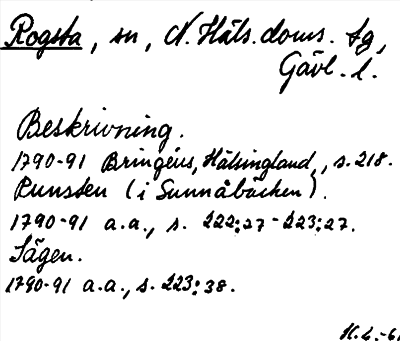 Rogsta, sn, N. Häls. doms. sg,
Gävl. l.
Beskrivning.
1790-91 Bringéus, Hälsingland, s. 218.
Runsten (i Sunnåbäcken).
1790-91 a.a., s. 222:27-223:27.
Sägen.
1790-91 a.a., s. 223:38.
H.L.-61